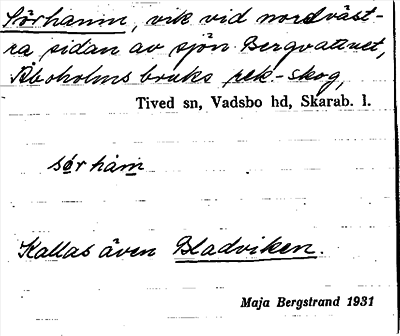 Sörhamn, vik vid nordväst-
ra sidan av sjön Bergvattnet,
Åboholms bruks rek.-skog,
Tived sn, Vadsbo hd, Skarab. l.
sör ham
Kallas även Bladviken.
Maja Bergstrand 1931